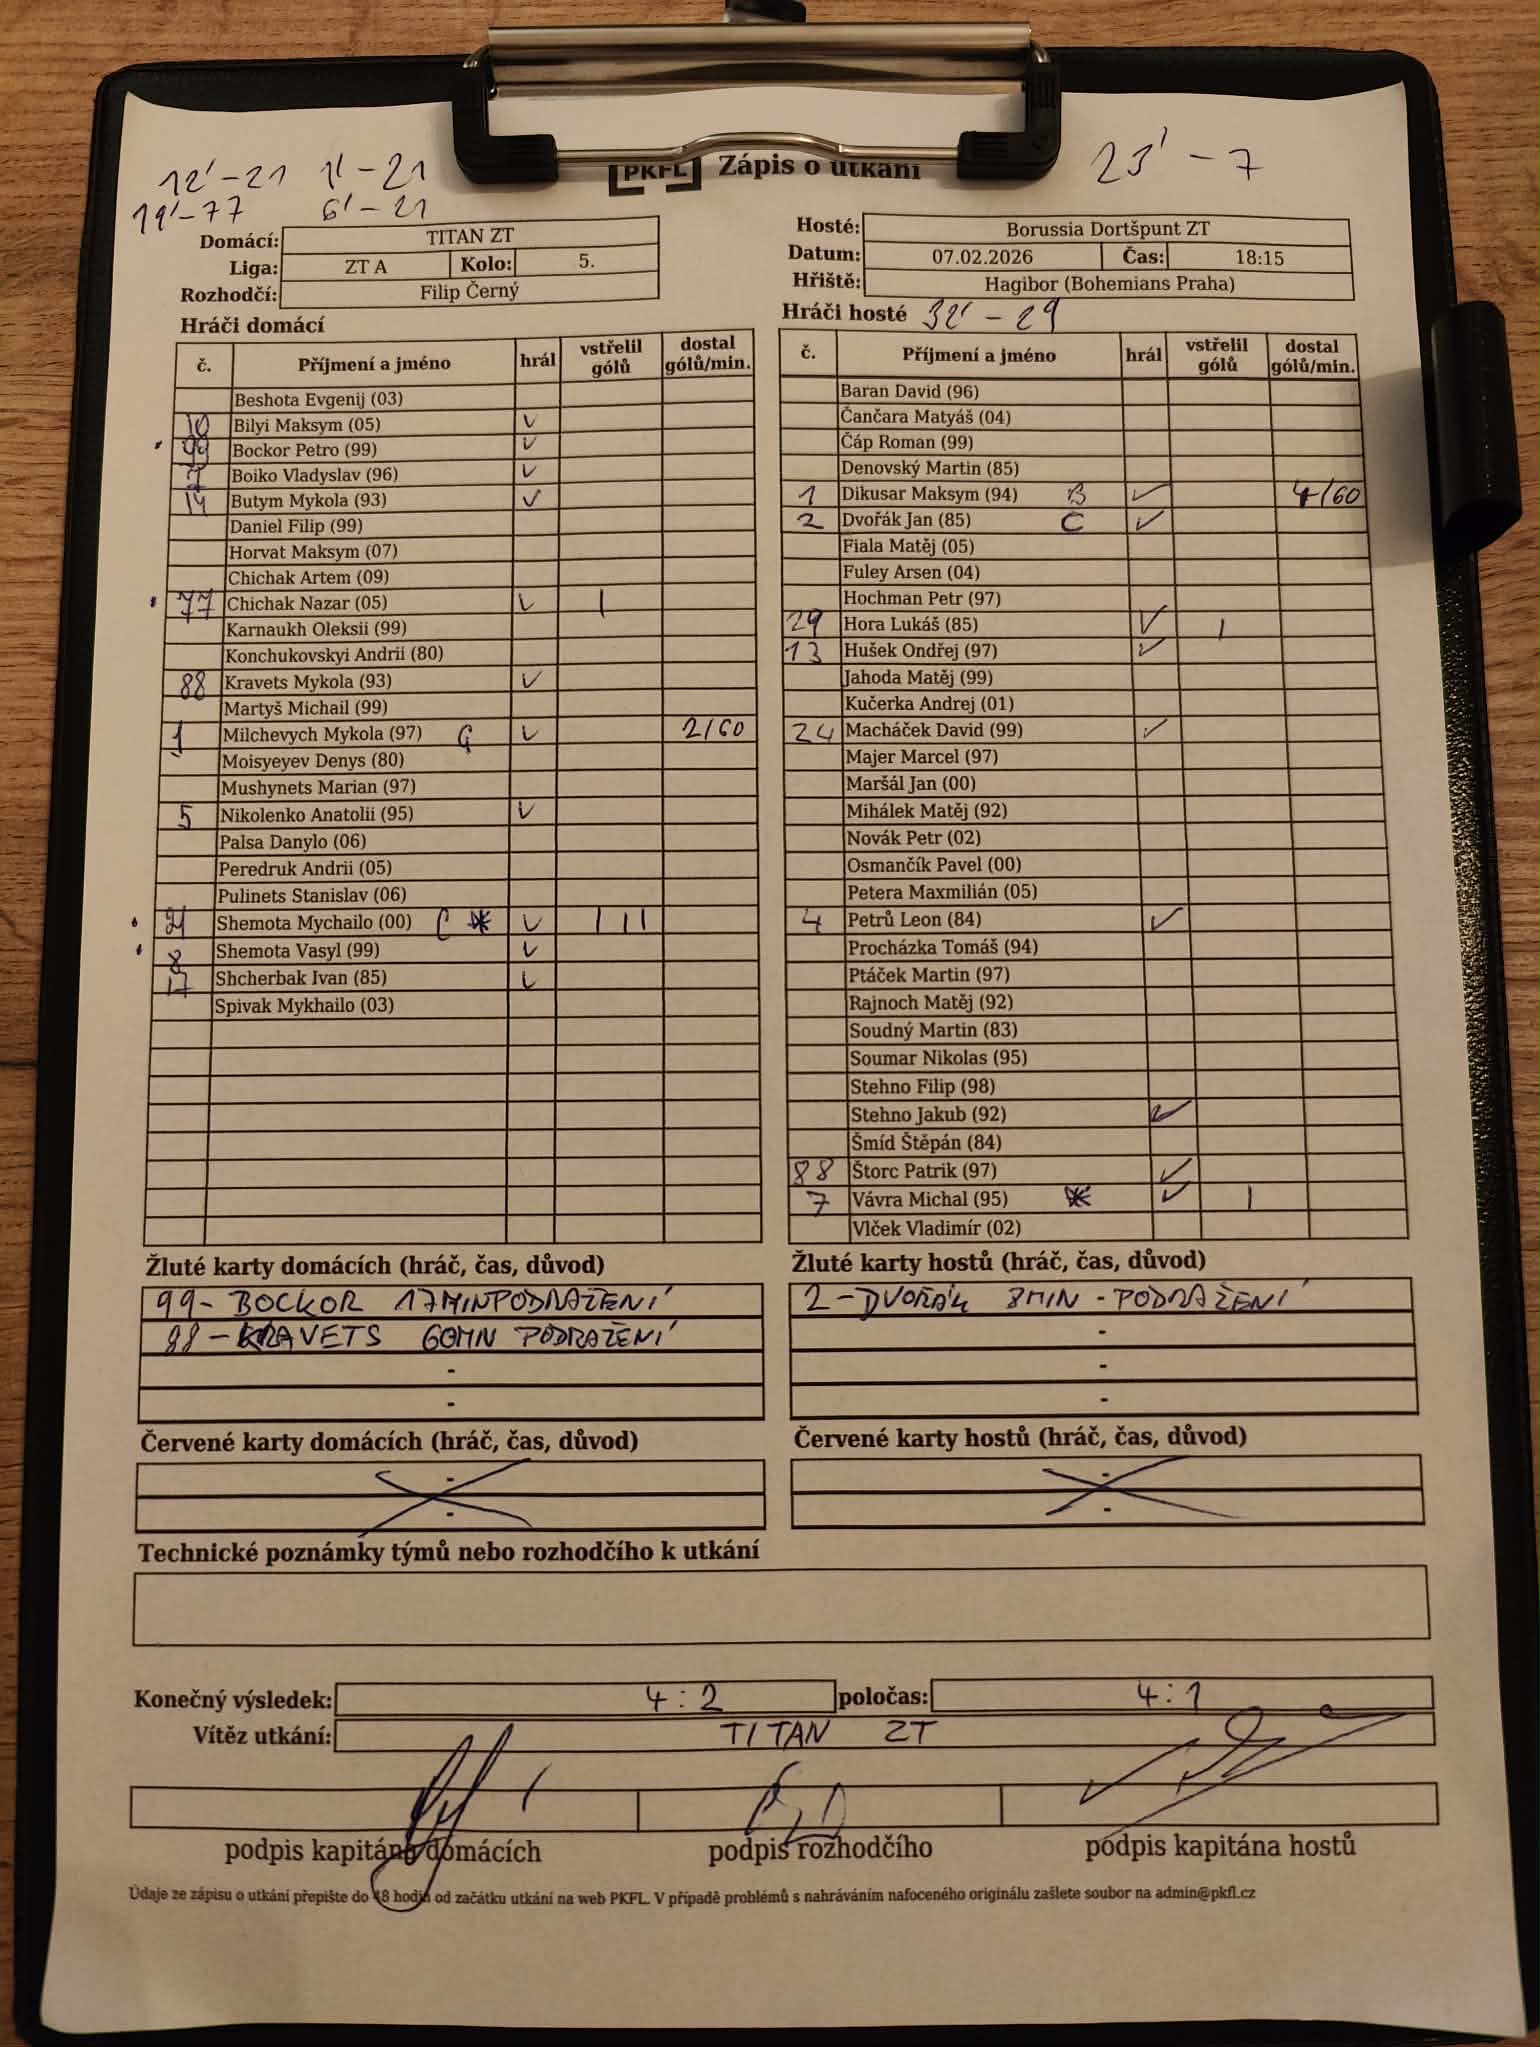 12'-21 1'-21
19'-77 6'-21
PKFL Zápis o utkání
23'-7
Domácí: TITAN ZT
Liga: ZT A Kolo: 5.
Rozhodčí: Filip Černý
Hosté: Borussia Dortšpunt ZT
Datum: 07.02.2026 Čas: 18:15
Hřiště: Hagibor (Bohemians Praha)
Hráči domácí
č. Příjmení a jméno hrál vstřelil gólů dostal gólů/min.
Beshota Evgenij (03)
10 Bilyi Maksym (05) ✓
99 Bockor Petro (99) ✓
7 Boiko Vladyslav (96) ✓
14 Butym Mykola (93) ✓
Daniel Filip (99)
Horvat Maksym (07)
Chichak Artem (09)
77 Chichak Nazar (05) ✓ |
Karnaukh Oleksii (99)
Konchukovskyi Andrii (80)
88 Kravets Mykola (93) ✓
Martyš Michail (99)
1 Milchevych Mykola (97) G ✓ 2/60
Moisyeyev Denys (80)
Mushynets Marian (97)
5 Nikolenko Anatolii (95) ✓
Palsa Danylo (06)
Peredruk Andrii (05)
Pulinets Stanislav (06)
21 Shemota Mychailo (00) C * ✓ | | |
8 Shemota Vasyl (99) ✓
17 Shcherbak Ivan (85) ✓
Spivak Mykhailo (03)
Hráči hosté 32'-29
č. Příjmení a jméno hrál vstřelil gólů dostal gólů/min.
Baran David (96)
Čančara Matyáš (04)
Čáp Roman (99)
Denovský Martin (85)
1 Dikusar Maksym (94) B ✓ 4/60
2 Dvořák Jan (85) C ✓
Fiala Matěj (05)
Fuley Arsen (04)
Hochman Petr (97)
29 Hora Lukáš (85) ✓ |
13 Hušek Ondřej (97) ✓
Jahoda Matěj (99)
Kučerka Andrej (01)
24 Macháček David (99) ✓
Majer Marcel (97)
Maršál Jan (00)
Mihálek Matěj (92)
Novák Petr (02)
Osmančík Pavel (00)
Petera Maxmilián (05)
4 Petrů Leon (84) ✓
Procházka Tomáš (94)
Ptáček Martin (97)
Rajnoch Matěj (92)
Soudný Martin (83)
Soumar Nikolas (95)
Stehno Filip (98)
Stehno Jakub (92) ✓
Šmíd Štěpán (84)
88 Štorc Patrik (97) ✓
7 Vávra Michal (95) * ✓ |
Vlček Vladimír (02)
Žluté karty domácích (hráč, čas, důvod)
99- BOCKOR 17MIN PODRAŽENÍ
88 - KRAVETS 60MN PODRAŽENÍ
-
-
Žluté karty hostů (hráč, čas, důvod)
2 - DVOŘÁK 8MIN - PODRAŽENÍ
-
-
-
Červené karty domácích (hráč, čas, důvod)
-
-
Červené karty hostů (hráč, čas, důvod)
-
-
Technické poznámky týmů nebo rozhodčího k utkání
Konečný výsledek: 4:2 poločas: 4:1
Vítěz utkání: TITAN ZT
podpis kapitána domácích podpis rozhodčího podpis kapitána hostů
Údaje ze zápisu o utkání přepište do 48 hodin od začátku utkání na web PKFL. V případě problémů s nahráváním nafoceného originálu zašlete soubor na admin@pkfl.cz